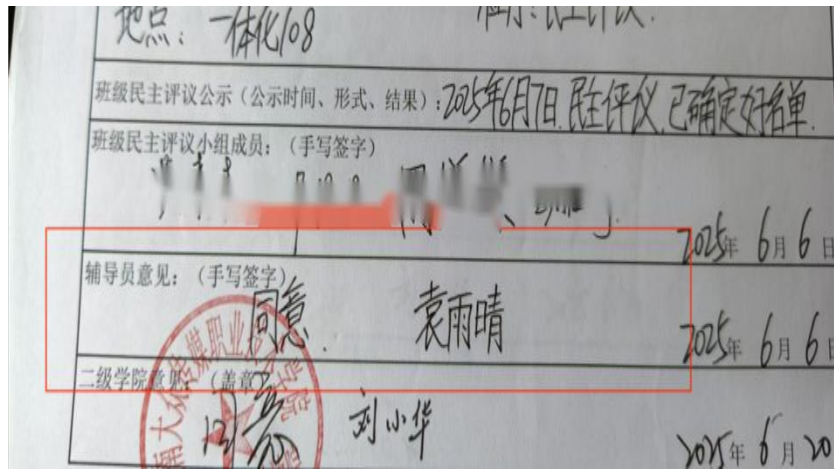 地点：一体化108
班级民主评议公示（公示时间、形式、结果）：2025年6月7日.民主评议.已确定好名单.
班级民主评议小组成员：（手写签字）
2025年 6月 6日
辅导员意见：（手写签字）
同意. 袁雨晴
2025年 6月 6日
二级学院意见：（盖章）
同意 刘小华
2025年 6月 20
南大众传媒职业技术学院